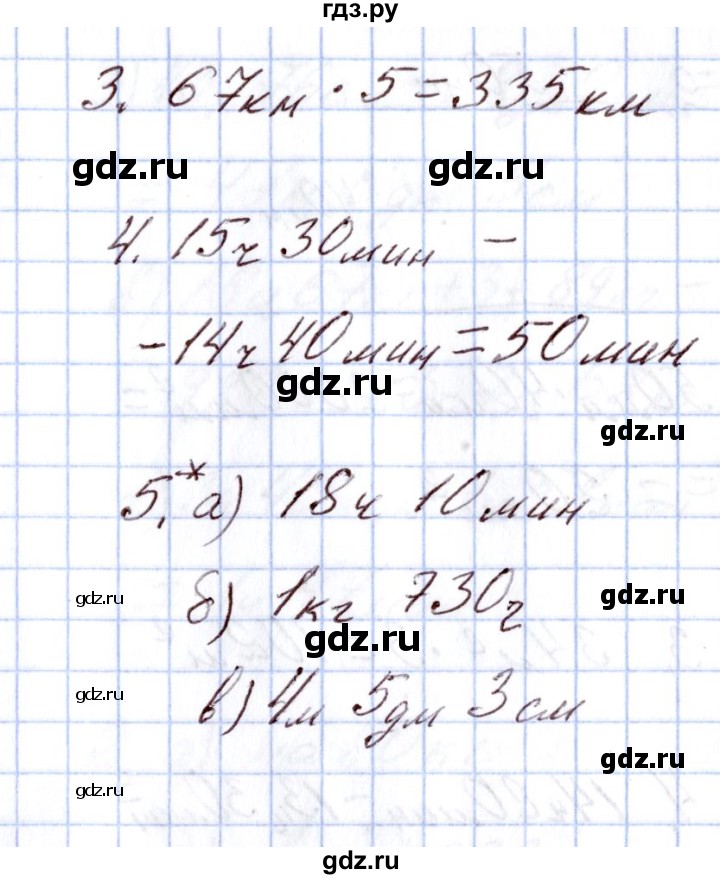 гдз.ру
3. 67км · 5 = 335км
gdz.ru gdz.ru
4. 15ч 30мин –
– 14ч 40мин = 50мин
gdz.ru
gdz.ru
5.* а) 18ч 10мин
gdz.ru
б) 1кг 730г
gdz.ru
gdz.ru
gdz.ru
в) 4м 5дм 3см
gdz.ru
gdz.ru
gdz.ru